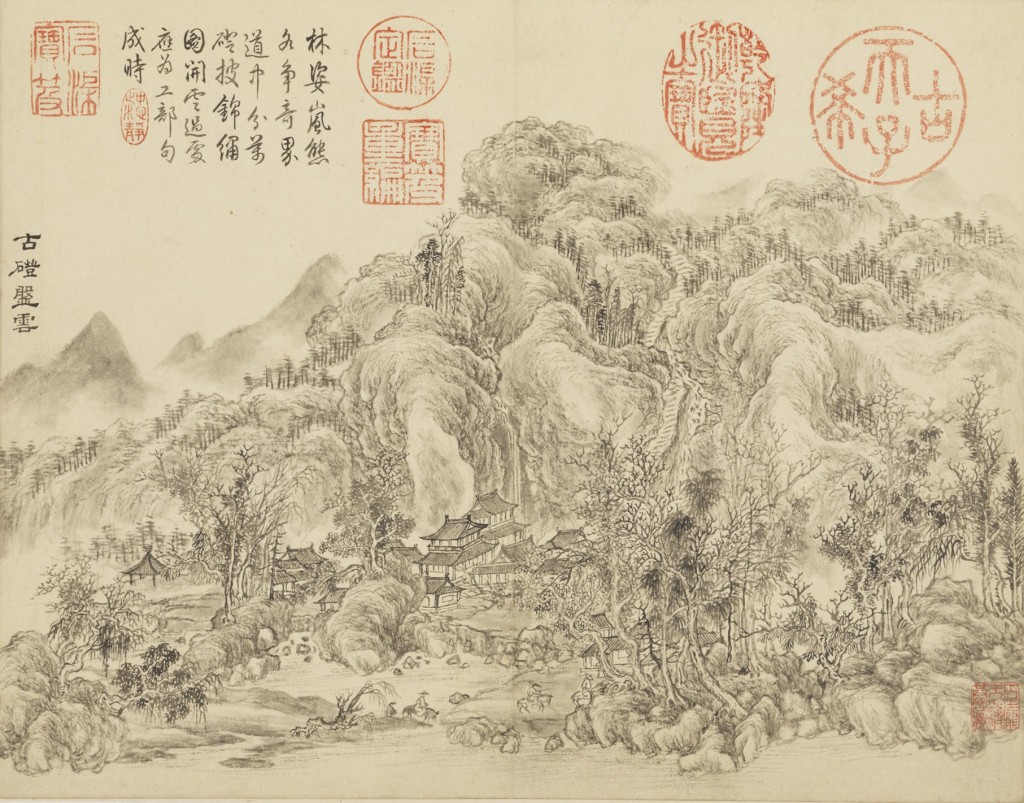 林姿嵐態
各爭奇界
道中分萬
磴披錦繡
圖開雲過處
應為工部句
成時
古磴盤雲
石渠寶笈
石渠定鑑
寶笈重編
乾隆御覽之寶
古希天子